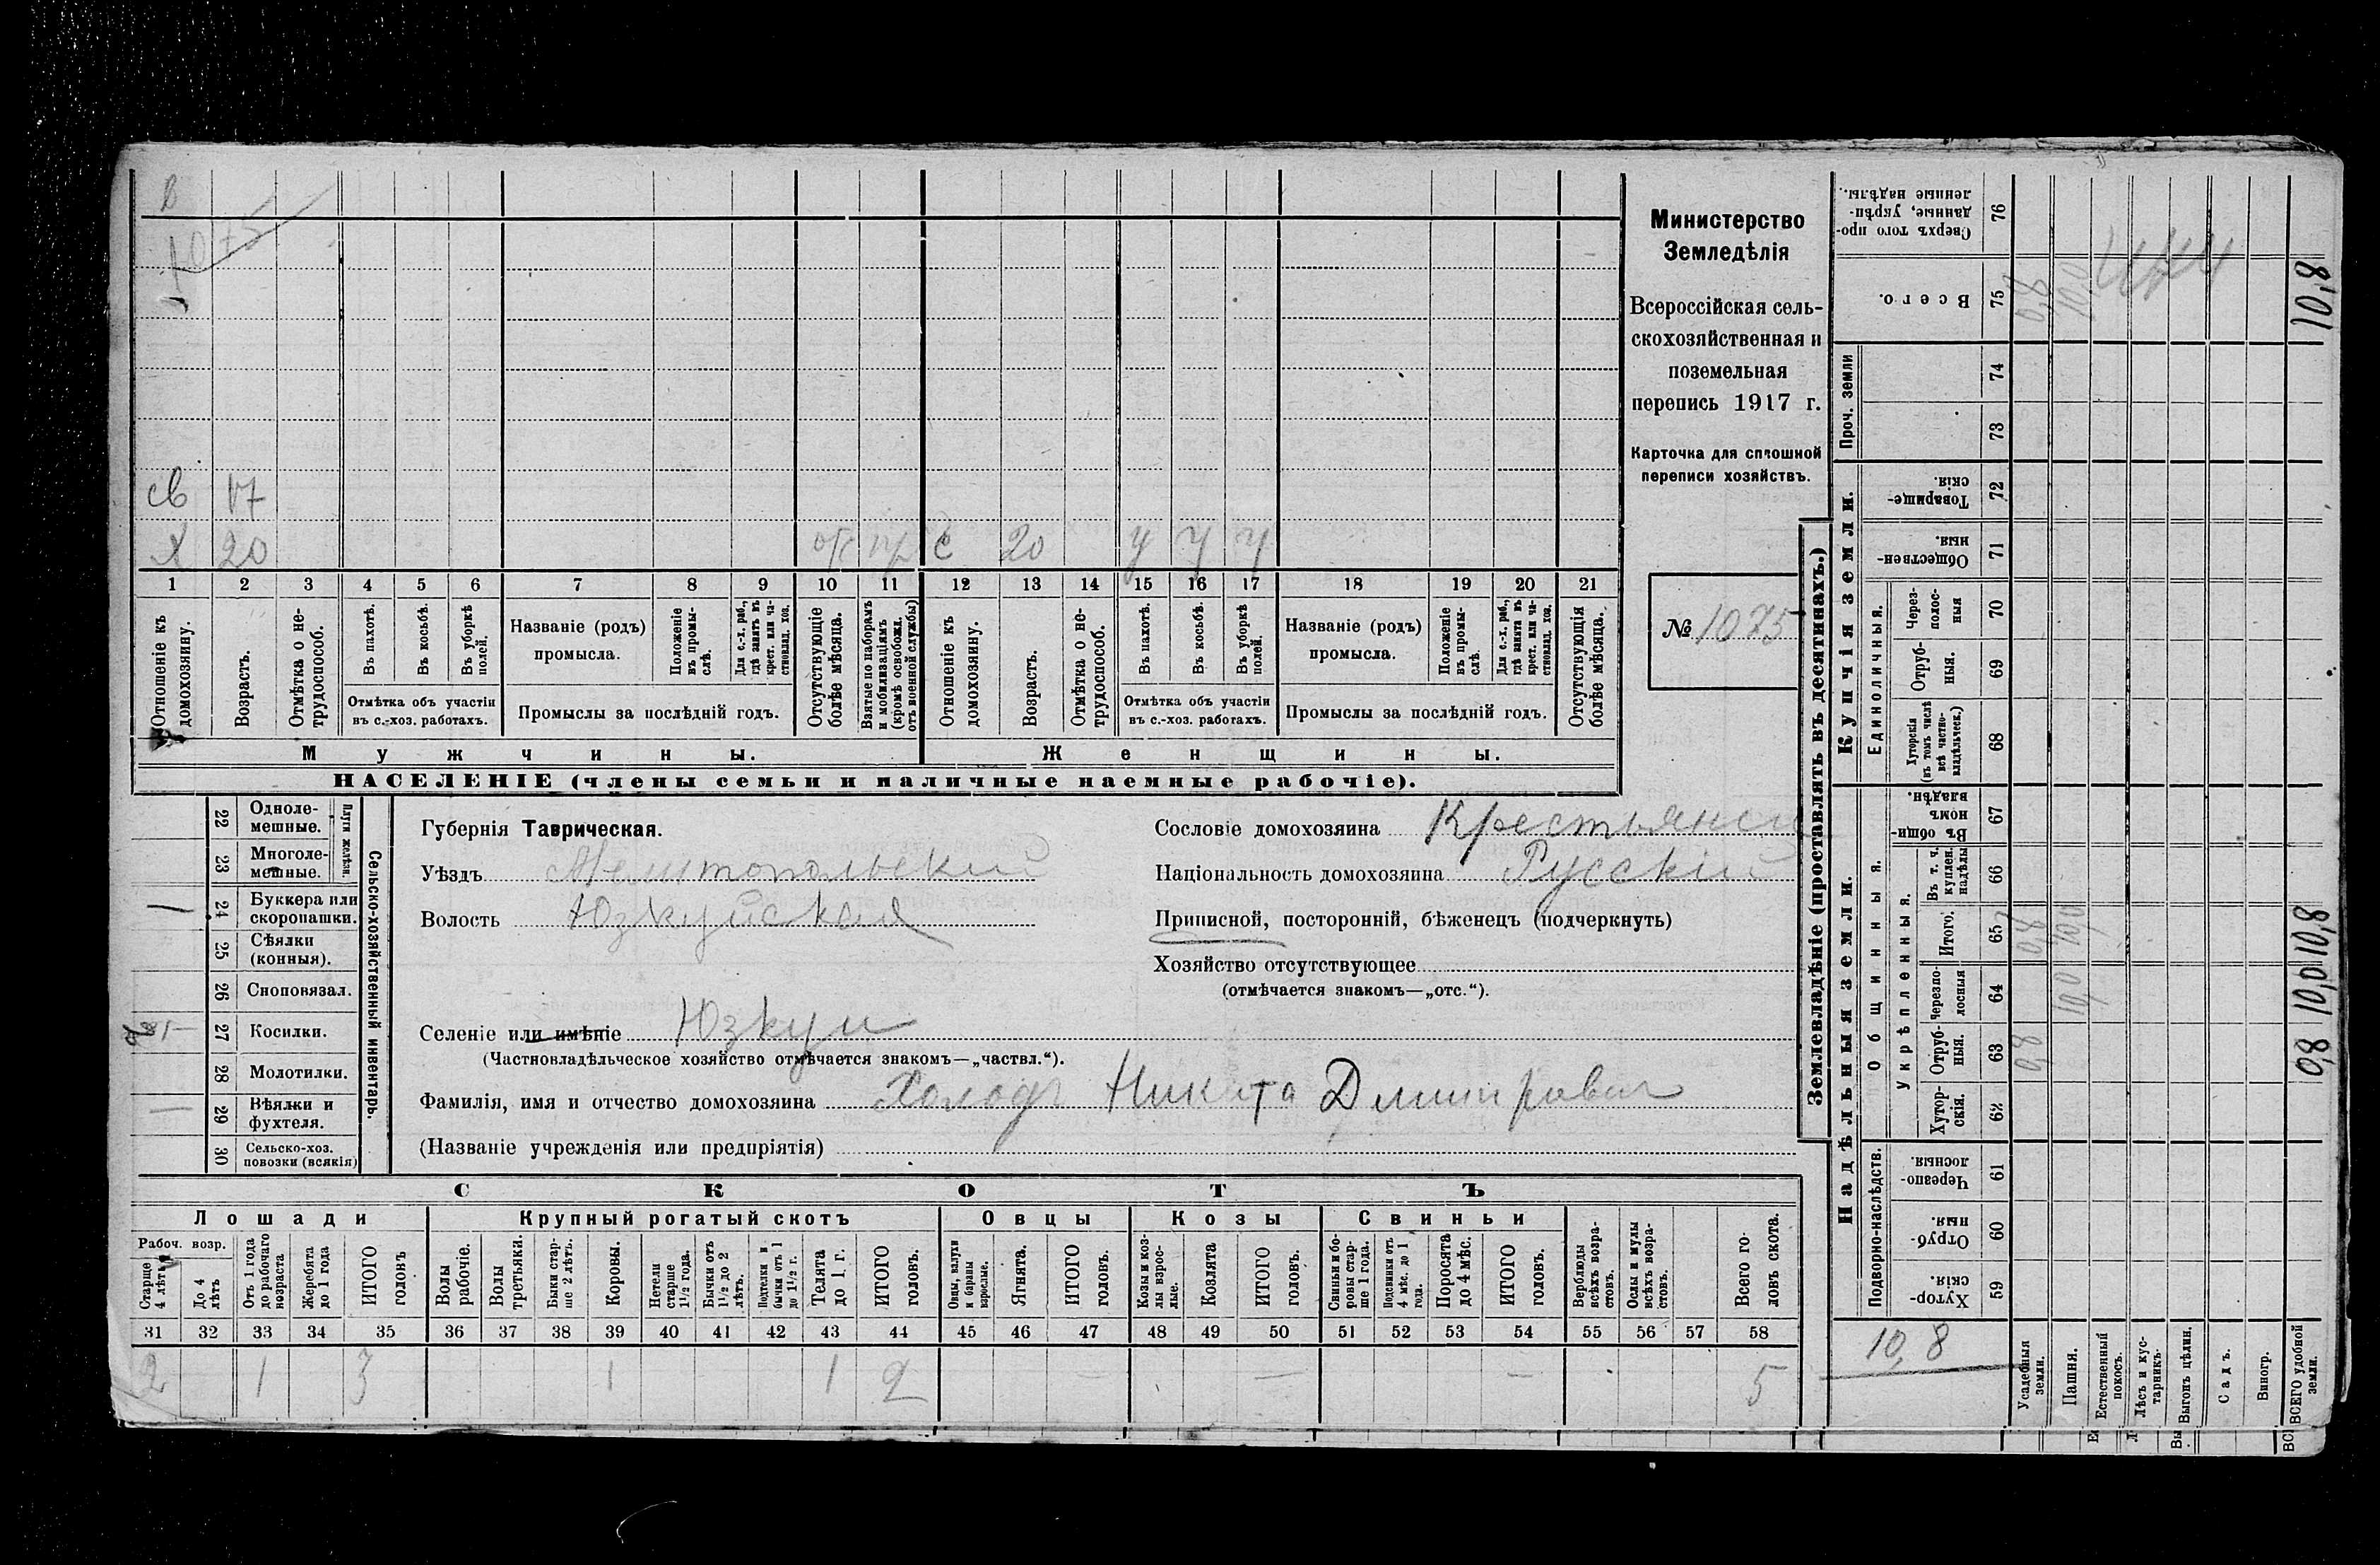 Министерство
Земледѣлія
Всероссійская сель-
скохозяйственная и
поземельная
перепись 1917 г.
Карточка для сплошной
переписи хозяйствъ.
№ 1075
1075
св 17
Х 20 пр с 20 у у у
1 2 3 4 5 6 7 8 9 10 11 12 13 14 15 16 17 18 19 20 21
Отношеніе къ домохозяину.
Возрастъ.
Отмѣтка о не-трудоспособ.
Въ пахотѣ.
Въ косьбѣ.
Въ уборкѣ полей.
Отмѣтка объ участіи
въ с.-хоз. работахъ.
Названіе (родъ)
промысла.
Положеніе въ промы-слѣ.
Для с.-х. раб., гдѣ занятъ въ крест. или ча-стновлад. хоз.
Промыслы за послѣдній годъ.
Отсутствующіе болѣе мѣсяца.
Взятые по наборамъ и мобилизаціямъ (кромѣ освобожд. отъ военной службы)
Отношеніе къ домохозяину.
Возрастъ.
Отмѣтка о не-трудоспособ.
Въ пахотѣ.
Въ косьбѣ.
Въ уборкѣ полей.
Отмѣтка объ участіи
въ с.-хоз. работахъ.
Названіе (родъ)
промысла.
Положеніе въ промы-слѣ.
Для с.-х. раб., гдѣ занята въ крест. или ча-стновлад. хоз.
Промыслы за послѣдній годъ.
Отсутствующія болѣе мѣсяца.
Мужчины.
Женщины.
НАСЕЛЕНІЕ (члены семьи и наличные наемные рабочіе).
22 Одноле-мешные.
23 Многоле-мешные.
Плуги желѣзн.
24 Буккера или скоропашки.
25 Сѣялки (конныя).
26 Сноповязал.
27 Косилки.
28 Молотилки.
29 Вѣялки и фухтеля.
30 Сельско-хоз. повозки (всякія)
Сельско-хозяйственный инвентарь.
Губернія Таврическая.
Уѣздъ Мелитопольский
Волость Юзкуйская
Сословіе домохозяина Крестьянск
Національность домохозяина Русскій
Приписной, посторонній, бѣженецъ (подчеркнуть)
Хозяйство отсутствующее
(отмѣчается знакомъ—„отс.“).
Селеніе или имѣніе Юзкуи
(Частновладѣльческое хозяйство отмѣчается знакомъ—„частвл.“).
Фамилія, имя и отчество домохозяина Холодъ Никита Дмитрович
(Названіе учрежденія или предпріятія)
СКОТЪ
Лошади
Крупный рогатый скотъ
Овцы
Козы
Свиньи
Рабоч. возр.
Старше 4 лѣтъ
До 4 лѣтъ
Отъ 1 года до рабочаго возраста
Жеребята до 1 года
ИТОГО головъ
Волы рабочіе.
Волы третьяки.
Быки стар-ше 2 лѣтъ.
Коровы.
Нетели старше 1½ года.
Бычки отъ 1½ до 2 лѣтъ.
Подтелки и бычки отъ 1 до 1½ г.
Телята до 1 г.
ИТОГО головъ.
Овцы, валухи и бараны взрослые.
Ягнята.
ИТОГО головъ.
Козы и коз-лы взрос-лые.
Козлята
ИТОГО головъ.
Свиньи и бо-ровы стар-ше 1 года.
Подсвинки отъ 4 мѣс. до 1 года.
Поросята до 4 мѣс.
ИТОГО головъ.
Верблюды всѣхъ возра-стовъ.
Ослы и мулы всѣхъ возра-стовъ.
Всего го-ловъ скота.
31 32 33 34 35 36 37 38 39 40 41 42 43 44 45 46 47 48 49 50 51 52 53 54 55 56 57 58
2 1 3 1 1 2 — — — 5
Землевладѣніе (проставлять въ десятинахъ.)
Надѣльныя земли.
Купчія земли.
Проч. земли
Подворно-наслѣдств.
Общинныя.
Укрѣпленныя.
Единоличныя.
Хутор-скія. 59
Отруб-ныя. 60
Черезпо-лосныя. 61
Хутор-скія. 62
Отруб-ныя. 63
Черезпо-лосныя 64
Итого. 65
Въ т. ч. куплен. надѣлы 66
Въ общи-номъ владѣн. 67
Хуторскія (въ томъ числѣ всѣ частно-владѣльческ.) 68
Отруб-ныя. 69
Через-полос-ныя 70
Обществен-ныя. 71
Товарище-скія. 72
73
74
Всего. 75
Сверхъ того про-данные, укрѣп-ленные надѣлы. 76
10,8
Усадебныя земли.
0,8 0,8 0,8
Пашня.
10,0 10,0 10,0
Естественный покосъ.
Лѣсъ и кус-тарникъ.
Выгонъ цѣлин.
Садъ.
Виногр.
ВСЕГО удобной земли.
0,8 10,0 10,8 10,8